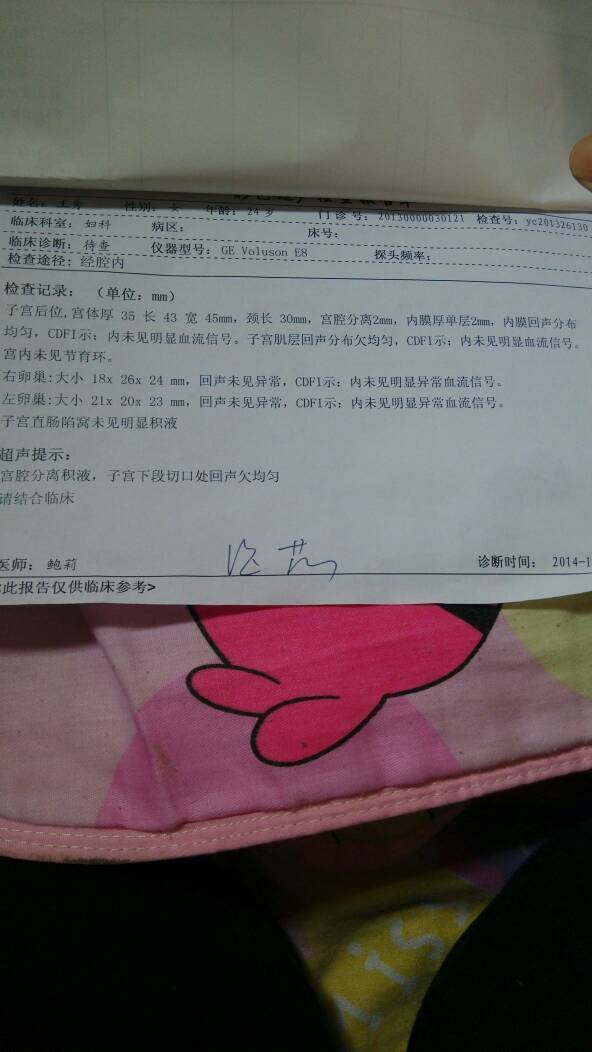 姓名: 王秀 性别: 女 年龄: 24 岁 门 诊 号: 20130000030121 检查号: yc201326130
临床科室: 妇科 病区: 床号:
临床诊断: 待查 仪器型号: GE Voluson E8 探头频率:
检查途径: 经腔内
检查记录: (单位: mm)
子宫后位,宫体厚 35 长 43 宽 45mm, 颈长 30mm, 宫腔分离2mm, 内膜厚单层2mm, 内膜回声分布
均匀, CDFI示: 内未见明显血流信号。子宫肌层回声分布欠均匀, CDFI示: 内未见明显血流信号。
宫内未见节育环。
右卵巢:大小 18x 26x 24 mm, 回声未见异常, CDFI示: 内未见明显异常血流信号。
左卵巢:大小 21x 20x 23 mm, 回声未见异常, CDFI示: 内未见明显异常血流信号。
子宫直肠陷窝未见明显积液
超声提示:
宫腔分离积液, 子宫下段切口处回声欠均匀
请结合临床
医师: 鲍莉 诊断时间: 2014-1
此报告仅供临床参考>